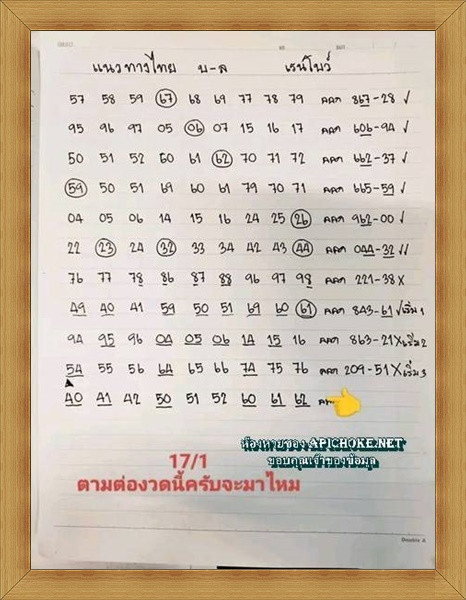 แนวทางไทย บ-ล เรนโบว์
57 58 59 67 68 69 77 78 79 ออก 867-28 ✓
95 96 97 05 06 07 15 16 17 ออก 606-94 ✓
50 51 52 60 61 62 70 71 72 ออก 662-37 ✓
59 50 51 69 60 61 79 70 71 ออก 665-59 ✓
04 05 06 14 15 16 24 25 26 ออก 962-00 ✓
22 23 24 32 33 34 42 43 44 ออก 044-32 ✓✓
76 77 78 86 87 88 96 97 98 ออก 221-38 X
49 40 41 59 50 51 69 60 61 ออก 843-61 ✓เริ่ม 1
94 95 96 04 05 06 14 15 16 ออก 863-21 Xเริ่ม 2
54 55 56 64 65 66 74 75 76 ออก 209-51 Xเริ่ม 3
40 41 42 50 51 52 60 61 62
ห้องหวยซอง APICHOKE.NET
ขอบคุณเจ้าของข้อมูล
17/1
ตามต่องวดนี้ครับจะมาไหม
Double A